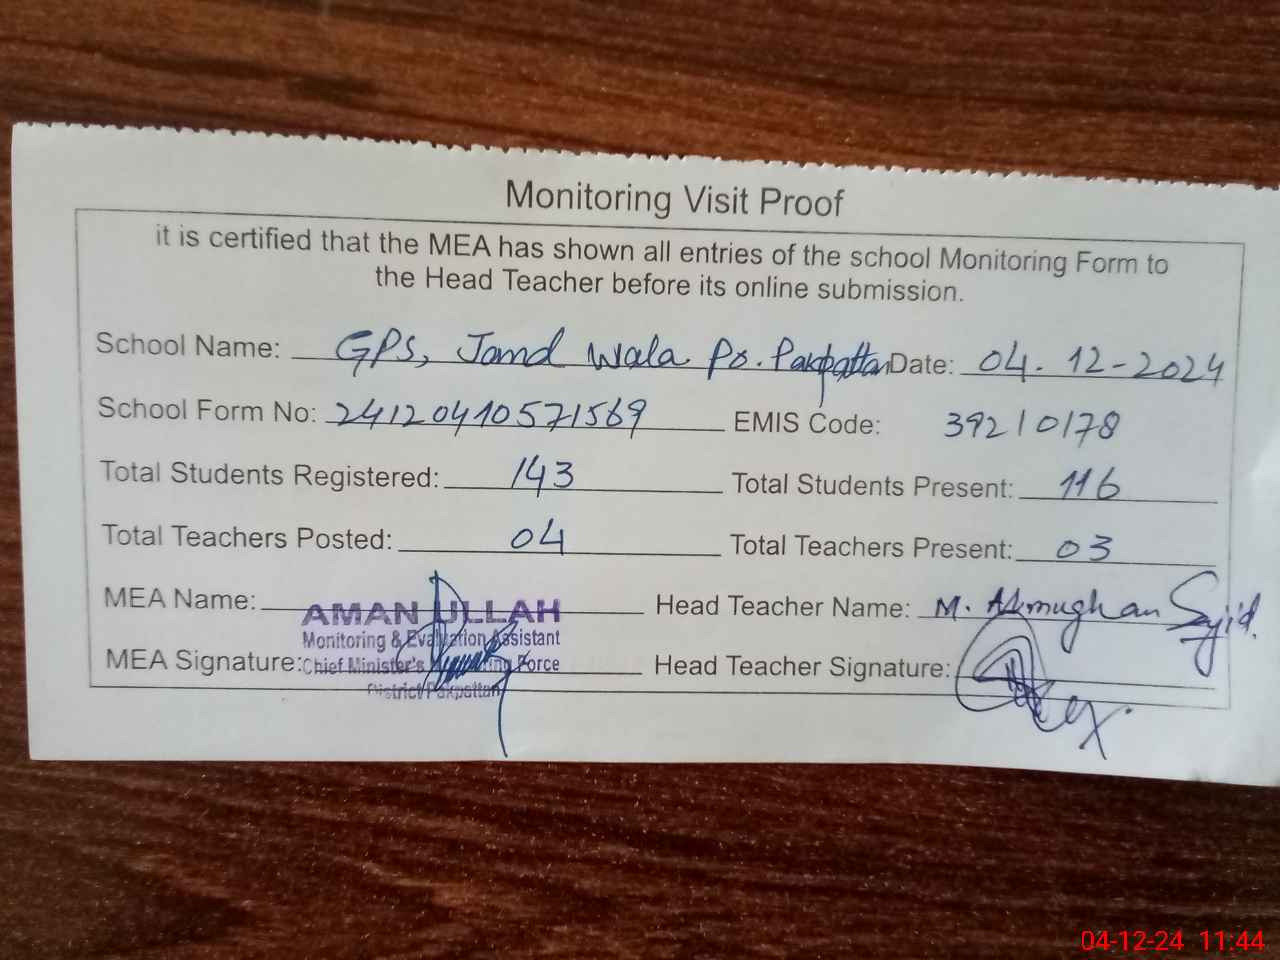 Monitoring Visit Proof
it is certified that the MEA has shown all entries of the school Monitoring Form to
the Head Teacher before its online submission.
School Name: GPS, Jand wala Po. Pakpattan Date: 04. 12-2024
School Form No: 24120410571569 EMIS Code: 39210178
Total Students Registered: 143 Total Students Present: 116
Total Teachers Posted: 04 Total Teachers Present: 03
MEA Name: AMAN ULLAH Head Teacher Name: M.
Monitoring & Evaluation Assistant
MEA Signature: Chief Minister's Monitoring Force Head Teacher Signature:
District Pakpattan
04-12-24 11:44